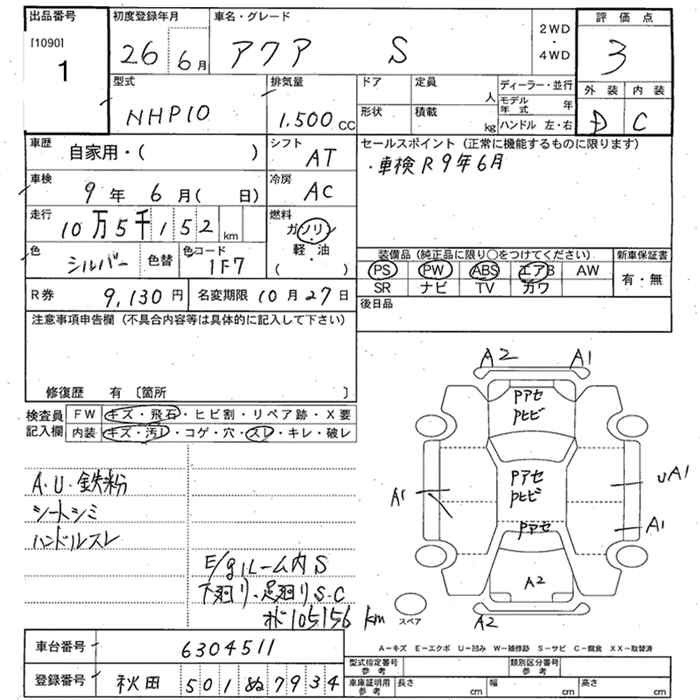 出品番号 初度登録年月 車名・グレード 2WD・4WD 評価点
[1090]
1
26年6月 アクア S 3
型式 排気量 ドア 定員 人 ディーラー・並行 外装 内装
モデル年式 年
NHP10 1.500cc 形状 積載 kg ハンドル 左・右 D C
車歴 自家用・( ) シフト AT セールスポイント (正常に機能するものに限ります)
・車検R9年6月
車検 9年 6月( 日) 冷房 AC
走行 10万5千152km 燃料 ガソリン
軽・油
( )
色 シルバー 色替 色コード 1F7
装備品(純正品に限り○をつけてください) 新車保証書
PS PW ABS エアB AW 有・無
SR ナビ TV カワ
R券 9,130円 名変期限 10月27日 後日品
注意事項申告欄(不具合内容等は具体的に記入して下さい)
修復歴 有〔箇所 〕
検査員記入欄 FW キズ・飛石・ヒビ割・リペア跡・X要
内装 キズ・汚レ・コゲ・穴・スレ・キレ・破レ
A・U・鉄粉
シートシミ
ハンドルスレ
E/gルーム内S
下廻り・足廻りS・C
105156 km
A2 A1
Pアセ
Pヒビ
Pアセ
Pヒビ
A1 UA1
A1
Pアセ
A2
A2
スペア
A−キズ E−エクボ U−凹み W−補修跡 S−サビ C−腐食 XX−取替済
車台番号 6304511
登録番号 秋田 501 ぬ 7934
型式指定番号 参考 類別区分番号 参考
車庫証明用 参考 長さ cm 幅 cm 高さ cm